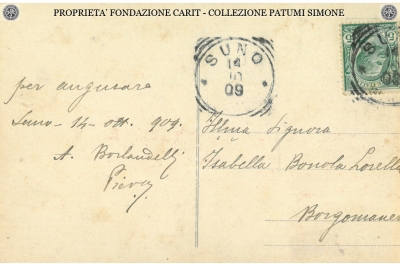 PROPRIETA' FONDAZIONE CARIT - COLLEZIONE PATUMI SIMONE
SUNO
14
10
09
SUNO
09
5
per augurare
Suno - 14 - ott. 909.
A.
Illma Signora
Isabella Bonola Lorella
Borgomaner